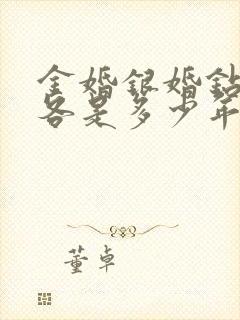 金婚银婚钻
各是多少年
董卓